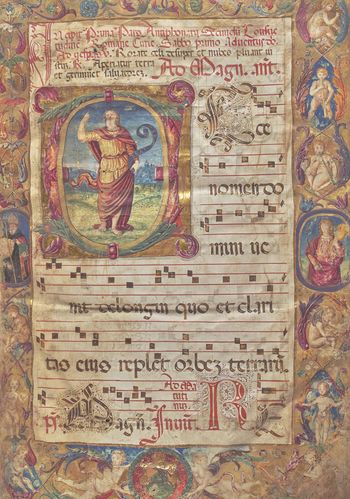 Incipit Prima Pars Antiphonarij Secundum Consue
tudine Romane Curie. Sabbo primo Adventus do.
Ad vesperas V. Rorate celi desuper et nubes pluant iu
stum R. Aperiatur terra
et germinet salvatorez.
Ad Magn. ant.
Ecce
nomen do
mini ve
nit de longin quo et clari
tas eius replet orbez terrarũ
Ad Ma
tuti
nu.
Ps. Magn. Invit. R